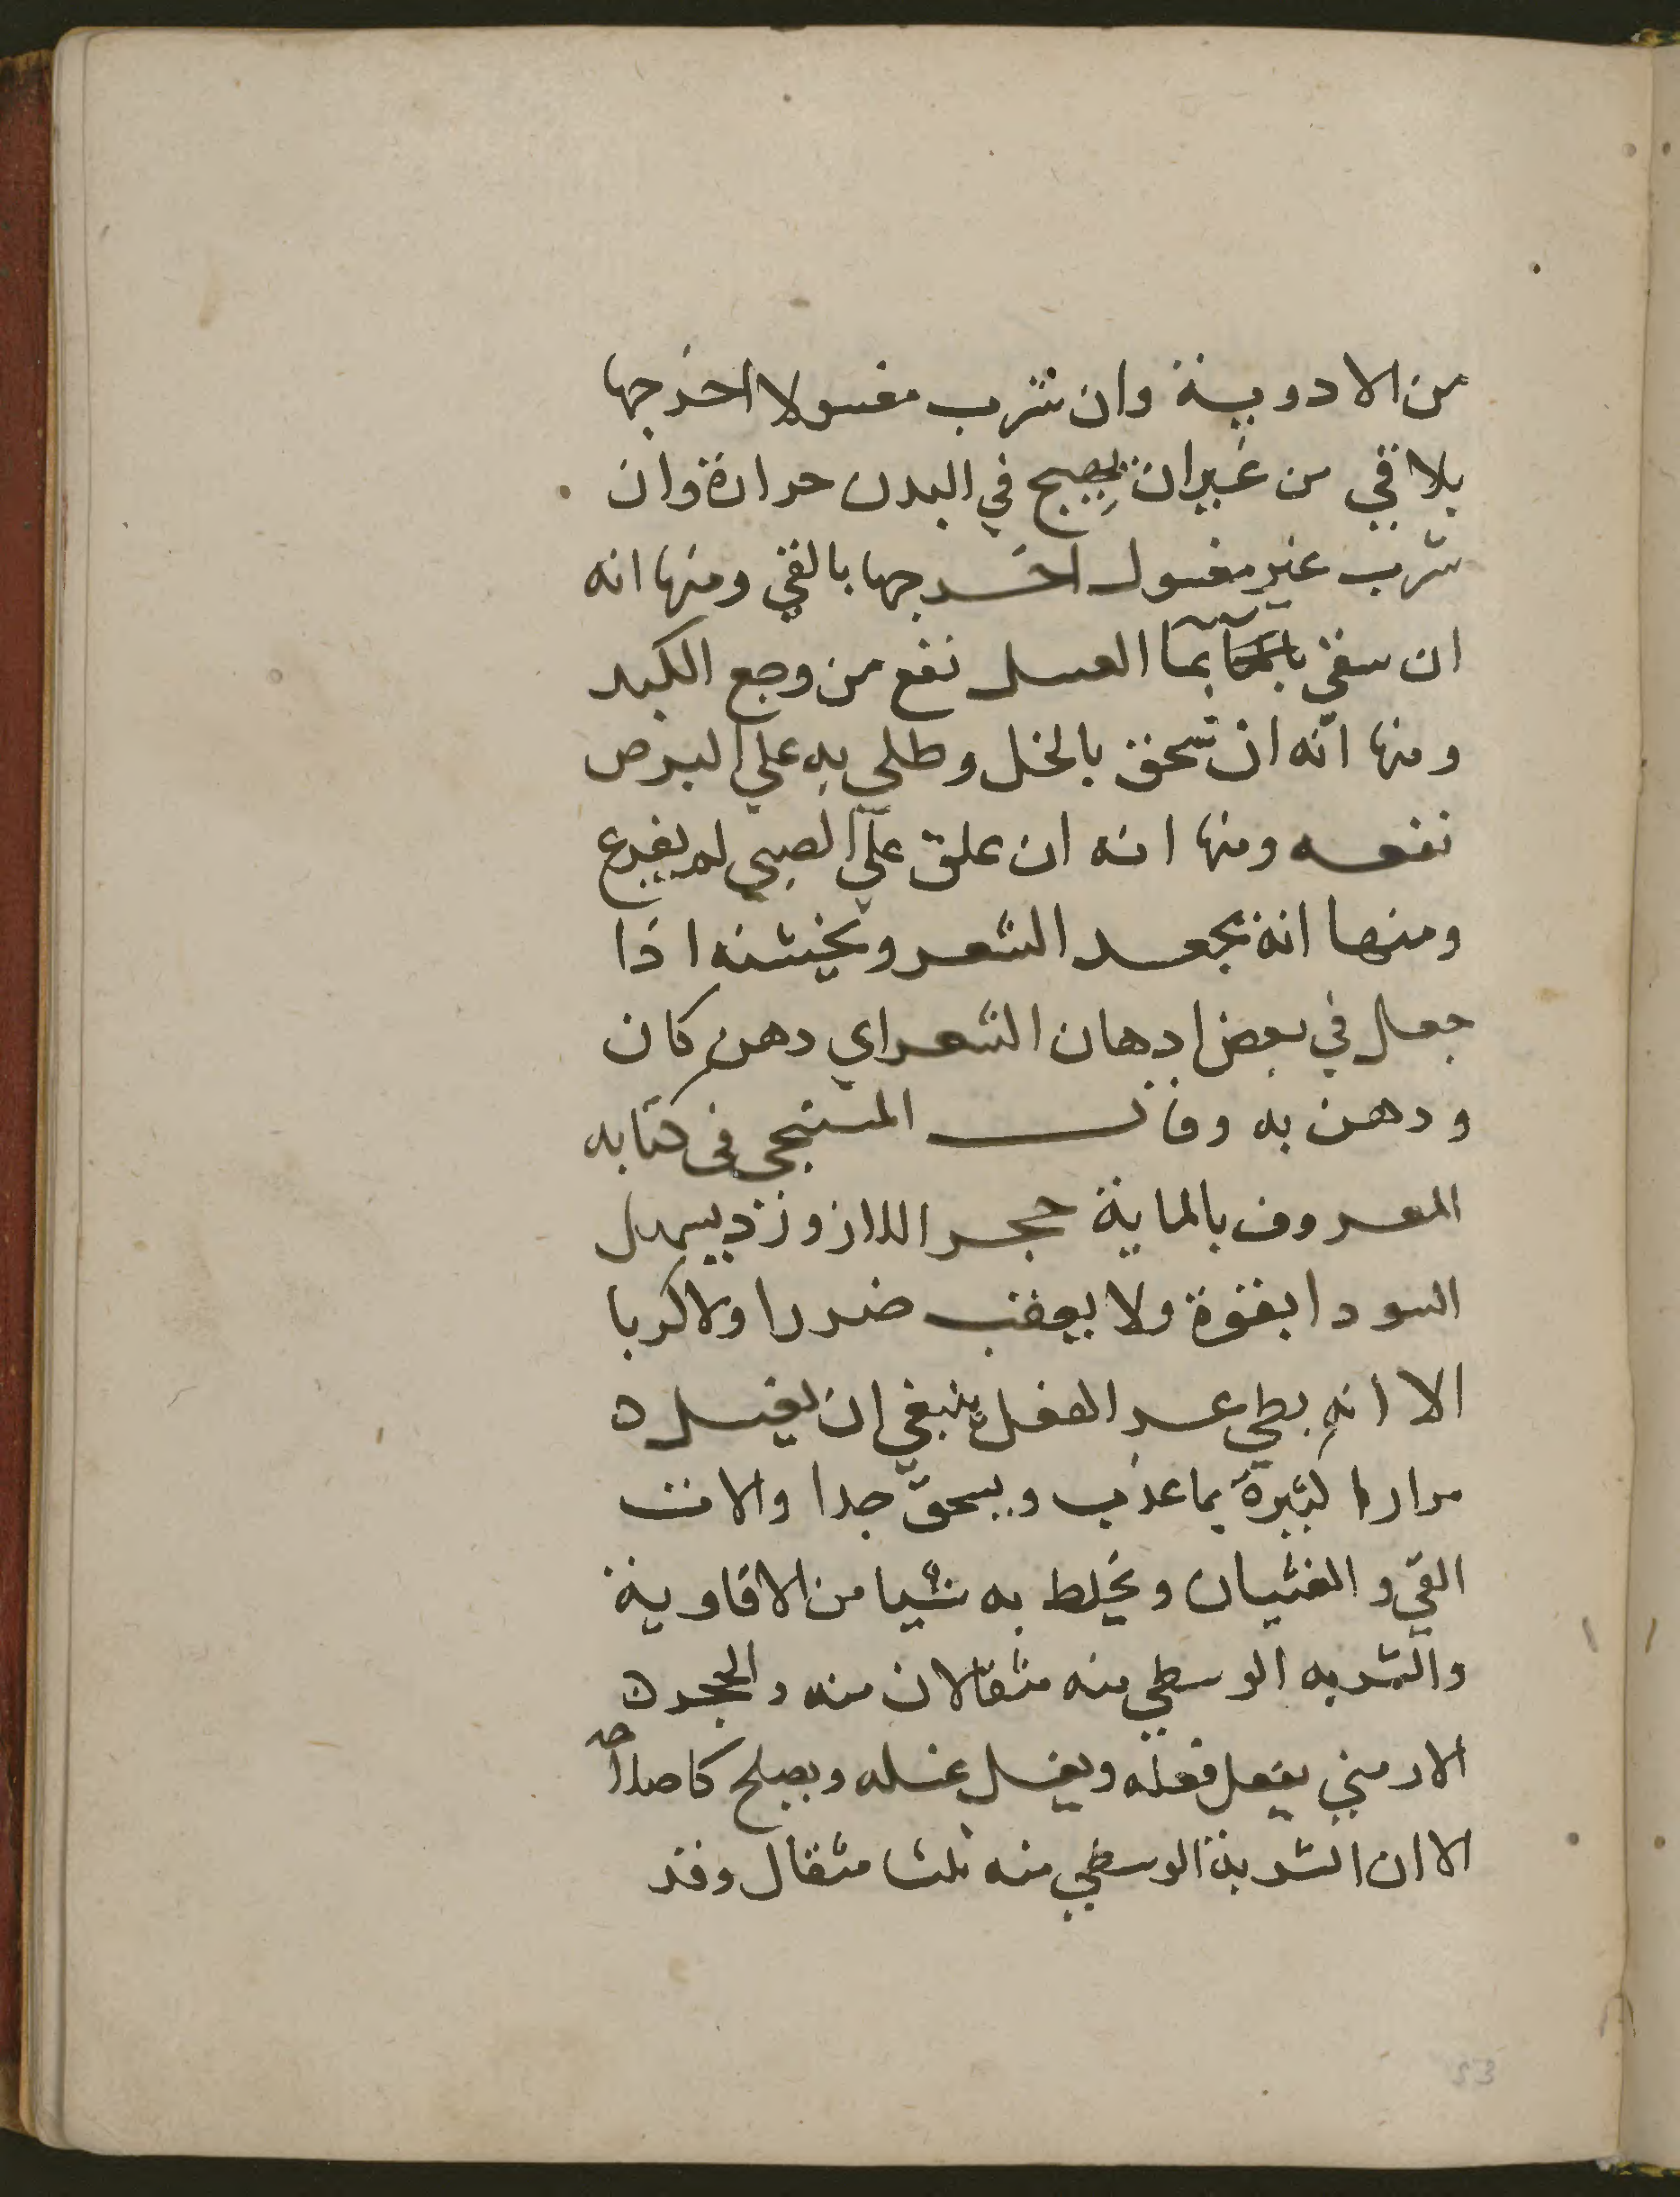 من الادوية وان شرب مغسولا اخرجها
بلا قي من غير ان يهيج في البدن حرارة وان
شرب غير مغسول اخرجها بالقي ومنها انه
ان سقي بما العسل نفع من وجع الكبد
ومنها انه ان سحق بالخل وطلي به علي البرص
نفعه ومنها انه ان علق علي الصبي لم يفزع
ومنها انه يجعد الشعر ويخشنه اذا
جعل في بعض ادهان الشعر اي دهن كان
ودهن به وقال المسيحي في كتابه
المعروف بالماية حجر اللازورد يسهل
السودا بقوة ولا يعقب ضررا ولا كربا
الا انه بطي عسر الفعل ينبغي ان يغسل
مرارا كثيرة بما عذب ويسحق جدا والا
القي والغثيان ويخلط به شيا من الافاوية
والشربه الوسطي منه مثقالان منه والحجر
الارمني يفعل فعله ويغسل غسله ويصلح كاصلاحه
الا ان الشربة الوسطي منه ثلثا مثقال وقد
53